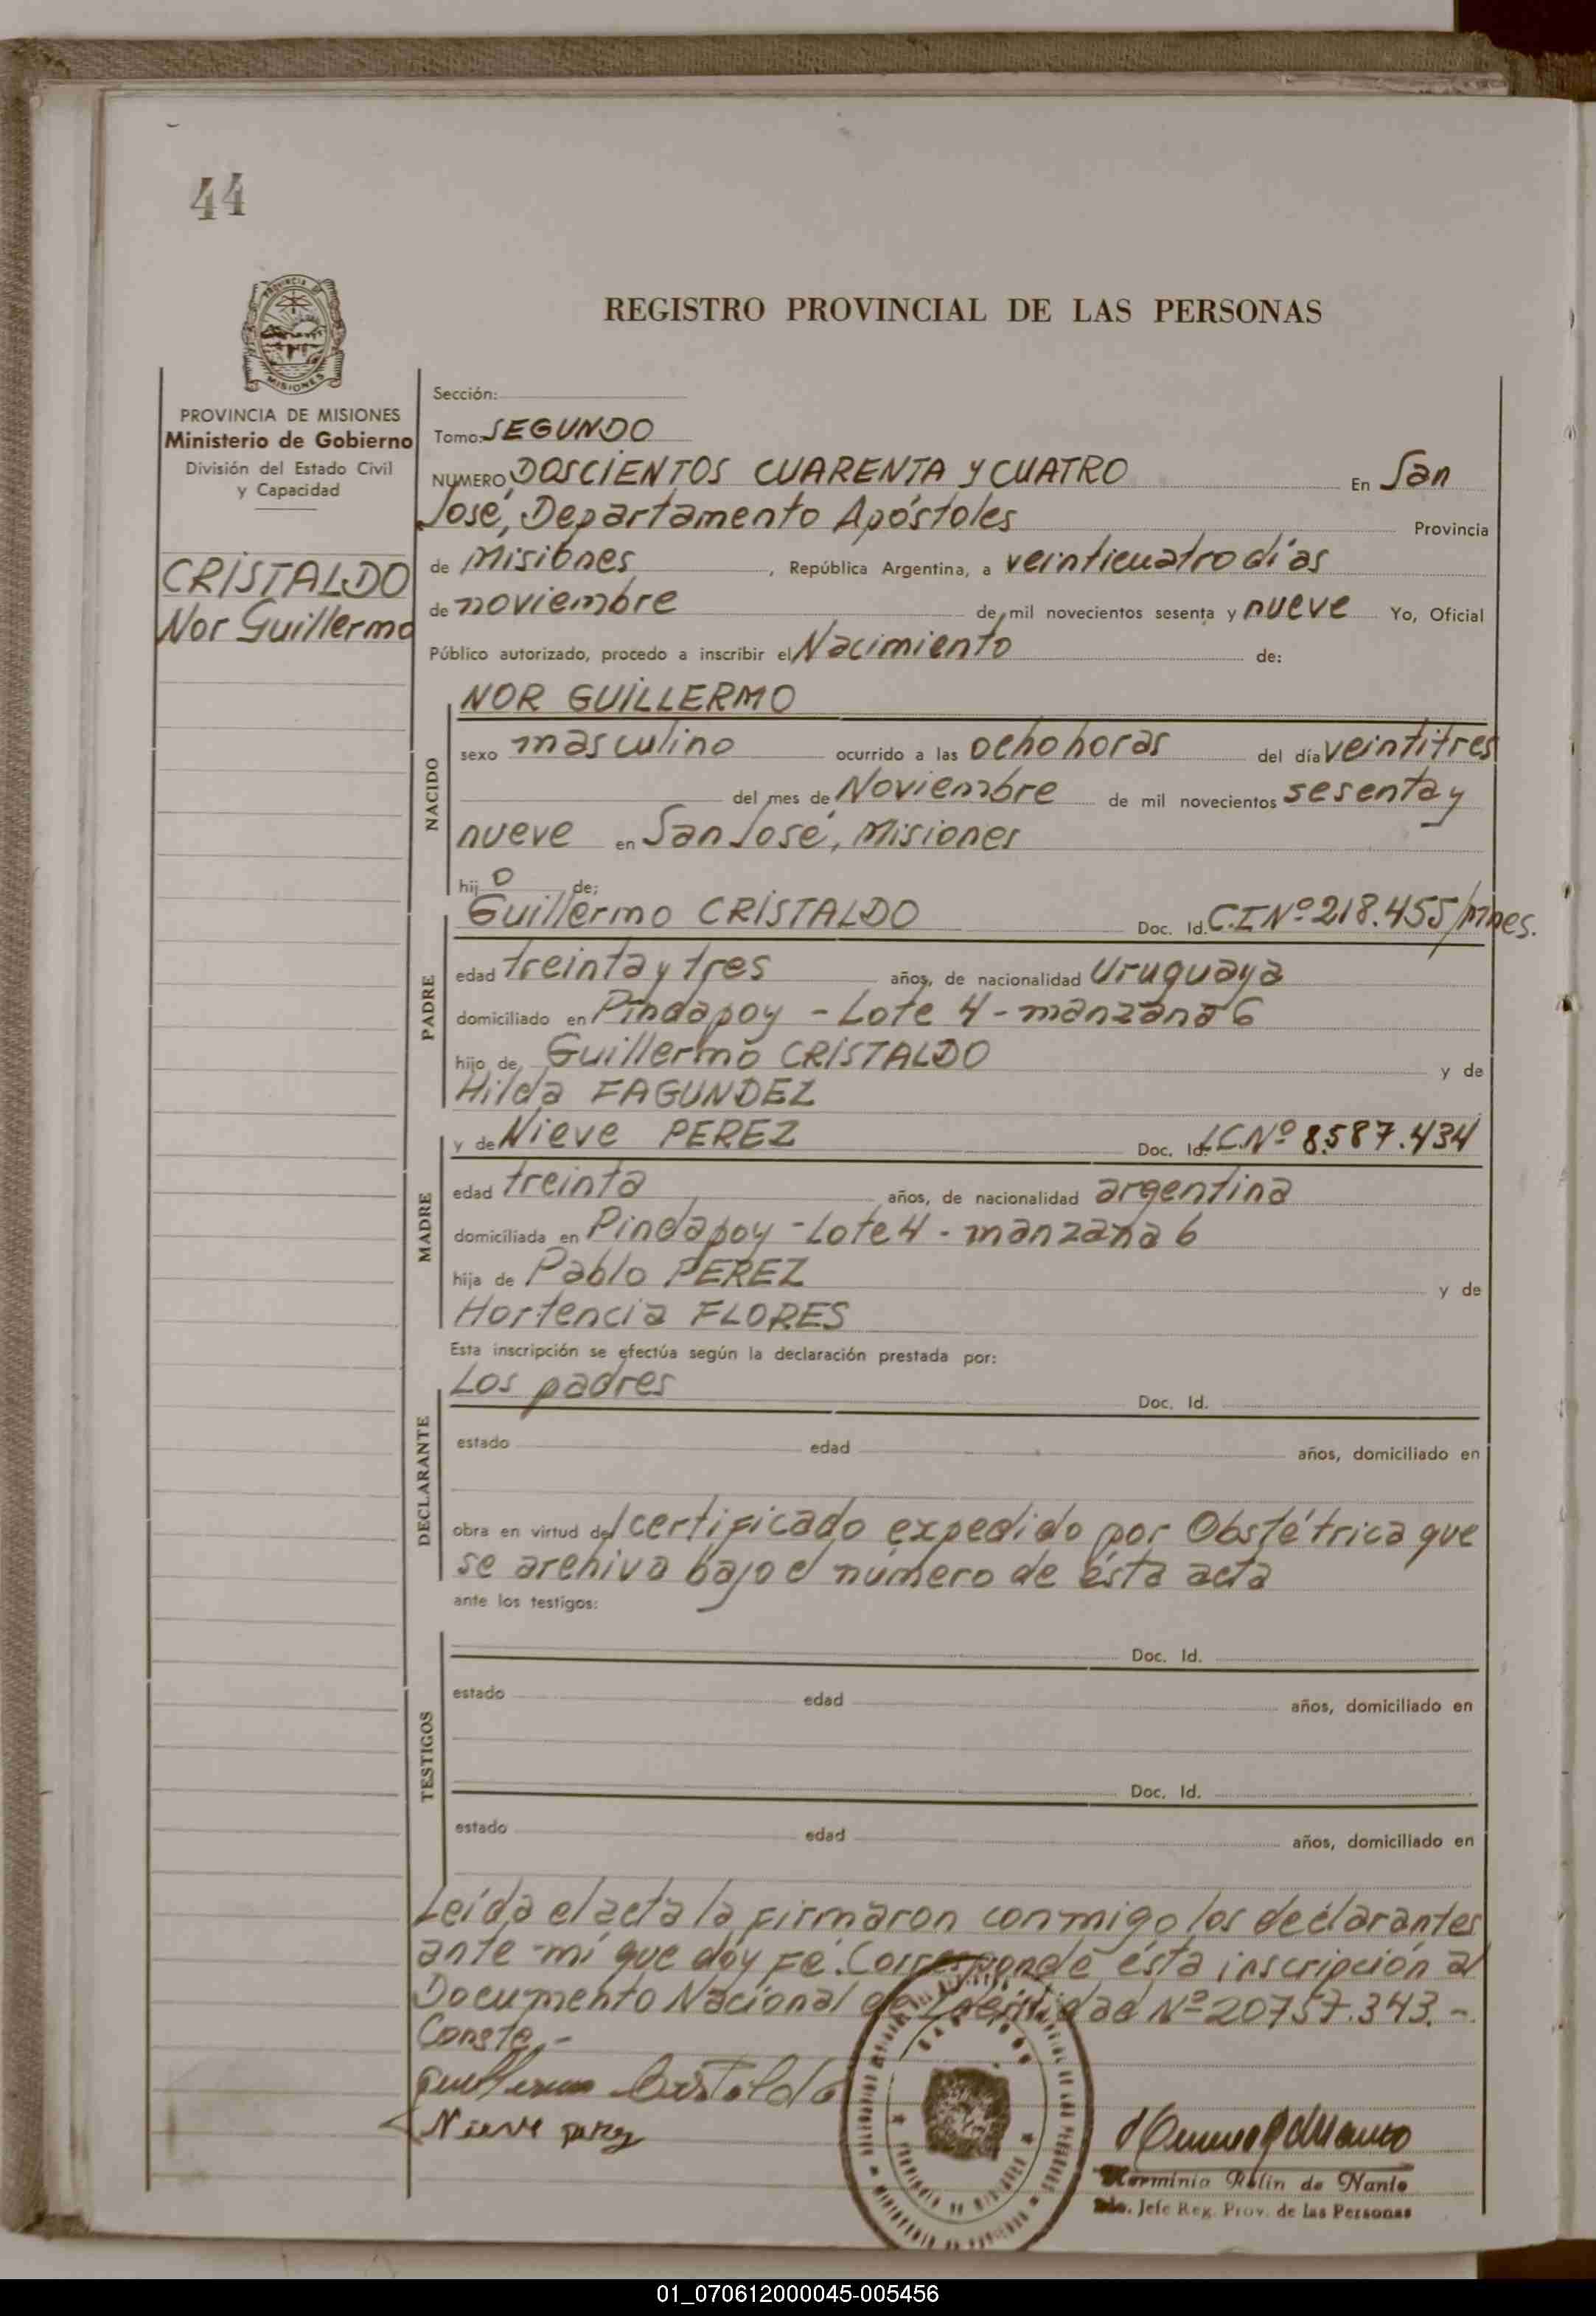 44
REGISTRO PROVINCIAL DE LAS PERSONAS
PROVINCIA DE MISIONES
Ministerio de Gobierno
División del Estado Civil
y Capacidad
CRISTALDO
Nor Guillermo
Sección:
Tomo: SEGUNDO
NUMERO DOSCIENTOS CUARENTA Y CUATRO En San
José, Departamento Apóstoles Provincia
de Misiones, República Argentina, a veinticuatro días
de noviembre de mil novecientos sesenta y nueve Yo, Oficial
Público autorizado, procedo a inscribir el Nacimiento de:
NACIDO
NOR GUILLERMO
sexo masculino ocurrido a las ocho horas del día veintitres
del mes de Noviembre de mil novecientos sesenta y
nueve en San José, Misiones
hijo de:
PADRE
Guillermo CRISTALDO Doc. Id. C.I Nº 218.455/Mnes.
edad treinta y tres años, de nacionalidad Uruguaya
domiciliado en Pindapoy - Lote 4 - manzana 6
hijo de Guillermo CRISTALDO y de
Hilda FAGUNDEZ
MADRE
y de Nieve PEREZ Doc. Id. LC.Nº 8.587.434
edad treinta años, de nacionalidad argentina
domiciliada en Pindapoy - Lote 4 - manzana 6
hija de Pablo PEREZ y de
Hortencia FLORES
Esta inscripción se efectúa según la declaración prestada por:
DECLARANTE
Los padres Doc. Id.
estado edad años, domiciliado en
obra en virtud del certificado expedido por Obstétrica que
se archiva bajo el número de ésta acta
ante los testigos:
TESTIGOS
Doc. Id.
estado edad años, domiciliado en
Doc. Id.
estado edad años, domiciliado en
Leída el acta la firmaron conmigo los declarantes
ante mí que doy Fé. Corresponde ésta inscripción al
Documento Nacional de Identidad Nº 20757.343.-
Conste.-
Guillermo Cristaldo
Nieve perez
Herminia Rolin de Nanlo
Jefe Reg. Prov. de las Personas
01_070612000045-005456